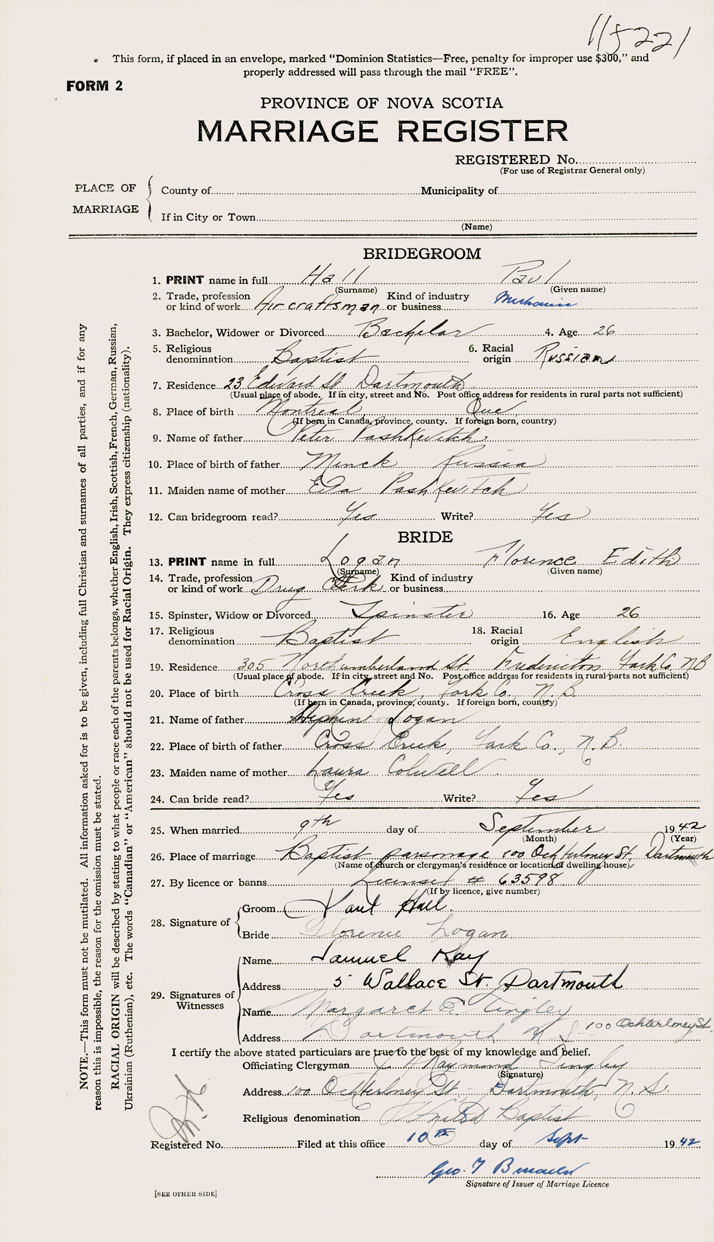 115221
This form, if placed in an envelope, marked "Dominion Statistics—Free, penalty for improper use $300," and
properly addressed will pass through the mail "FREE".
FORM 2
PROVINCE OF NOVA SCOTIA
MARRIAGE REGISTER
REGISTERED No.
(For use of Registrar General only)
PLACE OF MARRIAGE
County of Municipality of
If in City or Town
(Name)
BRIDEGROOM
1. PRINT name in full Hall Paul
(Surname) (Given name)
2. Trade, profession or kind of work Aircraftsman Kind of industry or business
3. Bachelor, Widower or Divorced Bachelor 4. Age 26
5. Religious denomination Baptist 6. Racial origin Russian
7. Residence 23 Edward St. Dartmouth
(Usual place of abode. If in city, street and No. Post office address for residents in rural parts not sufficient)
8. Place of birth Montreal, Que
(If born in Canada, province, county. If foreign born, country)
9. Name of father Peter Pashkevitch
10. Place of birth of father Minck Russia
11. Maiden name of mother Pashkevitch
12. Can bridegroom read? Yes Write? Yes
BRIDE
13. PRINT name in full Logan Florence Edith
(Surname) (Given name)
14. Trade, profession or kind of work Drug Clerk Kind of industry or business
15. Spinster, Widow or Divorced Spinster 16. Age 26
17. Religious denomination Baptist 18. Racial origin English
19. Residence 305 Northumberland St. Fredericton York Co. N.B
(Usual place of abode. If in city, street and No. Post office address for residents in rural parts not sufficient)
20. Place of birth Cross Creek, York Co., N.B.
(If born in Canada, province, county. If foreign born, country)
21. Name of father Stephen Logan
22. Place of birth of father Cross Creek, York Co., N.B.
23. Maiden name of mother Laura Colwell
24. Can bride read? Yes Write? Yes
25. When married 9th day of September 1942
(Month) (Year)
26. Place of marriage Baptist parsonage 100 Ochterloney St. Dartmouth
(Name of church or clergyman's residence or location of dwelling house)
27. By licence or banns License # 63598
(If by licence, give number)
28. Signature of
Groom Paul Hall
Bride Florence Logan
29. Signatures of Witnesses
Name Samuel Kay
Address 5 Wallace St. Dartmouth
Name Margaret E. Tingley
Address Dartmouth N S 100 Ochterloney St.
I certify the above stated particulars are true to the best of my knowledge and belief.
Officiating Clergyman Raymond Tingley
(Signature)
Address 100 Ochterloney St. Dartmouth, N. S.
Religious denomination United Baptist
Registered No. Filed at this office 10th day of Sept 1942
Geo. T
Signature of Issuer of Marriage Licence
[SEE OTHER SIDE]
NOTE.—This form must not be mutilated. All information asked for is to be given, including full Christian and surnames of all parties, and if for any
reason this is impossible, the reason for the omission must be stated.
RACIAL ORIGIN will be described by stating to what people or race each of the parents belongs, whether English, Irish, Scottish, French, German, Russian,
Ukrainian (Ruthenian), etc. The words "Canadian" or "American" should not be used for Racial Origin. They express citizenship (nationality).